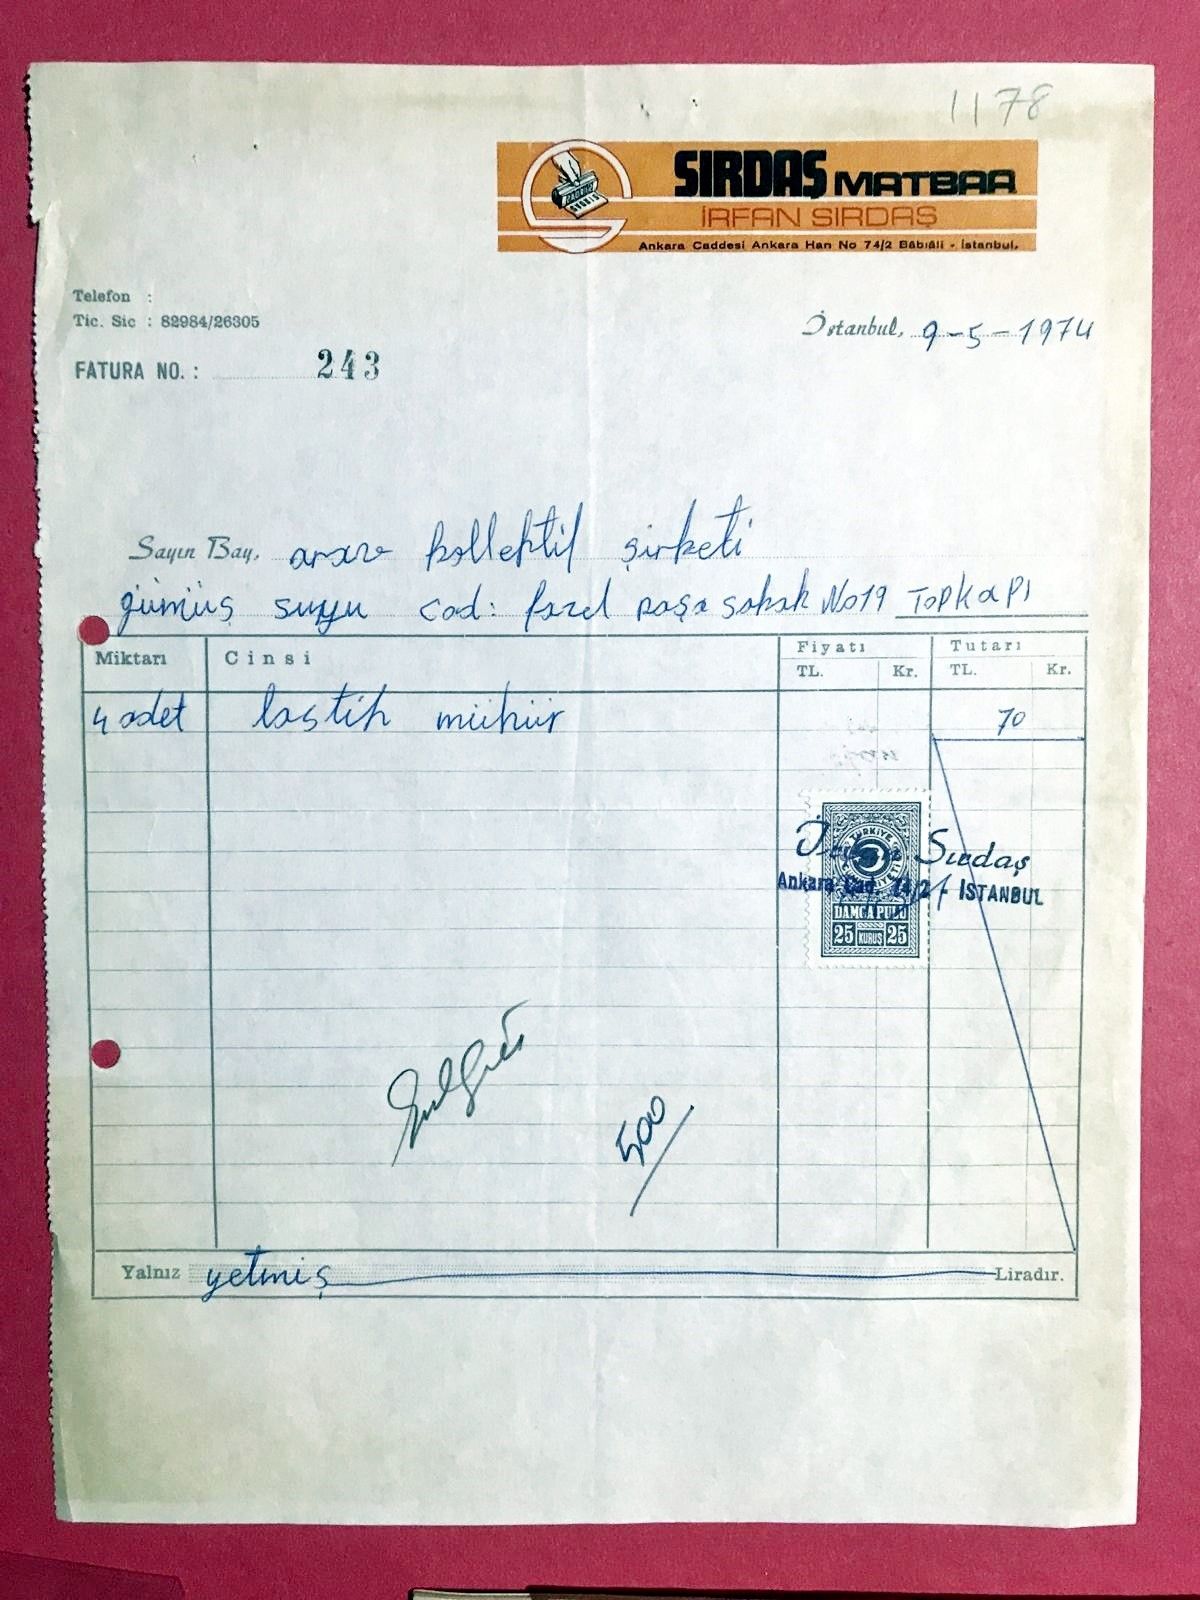 1178
SIRDAŞ MATBAA
İRFAN SIRDAŞ
Ankara Caddesi Ankara Han No 74/2 Bâbıâli - İstanbul.
Telefon :
Tic. Sic : 82984/26305
İstanbul, 9-5-1974
FATURA NO. : 243
Sayın Bay, kollektif şirketi
gümüş suyu cad: fazıl paşa sokak No 19 TOPKAPI
Miktarı Cinsi Fiyatı Tutarı
TL. Kr. TL. Kr.
4 adet lastik mühür 70
TÜRKİYE
Sırdaş
Ankara Cad. 74/2 - İSTANBUL
DAMGA PULU
25 KURUŞ 25
500
Yalnız yetmiş Liradır.